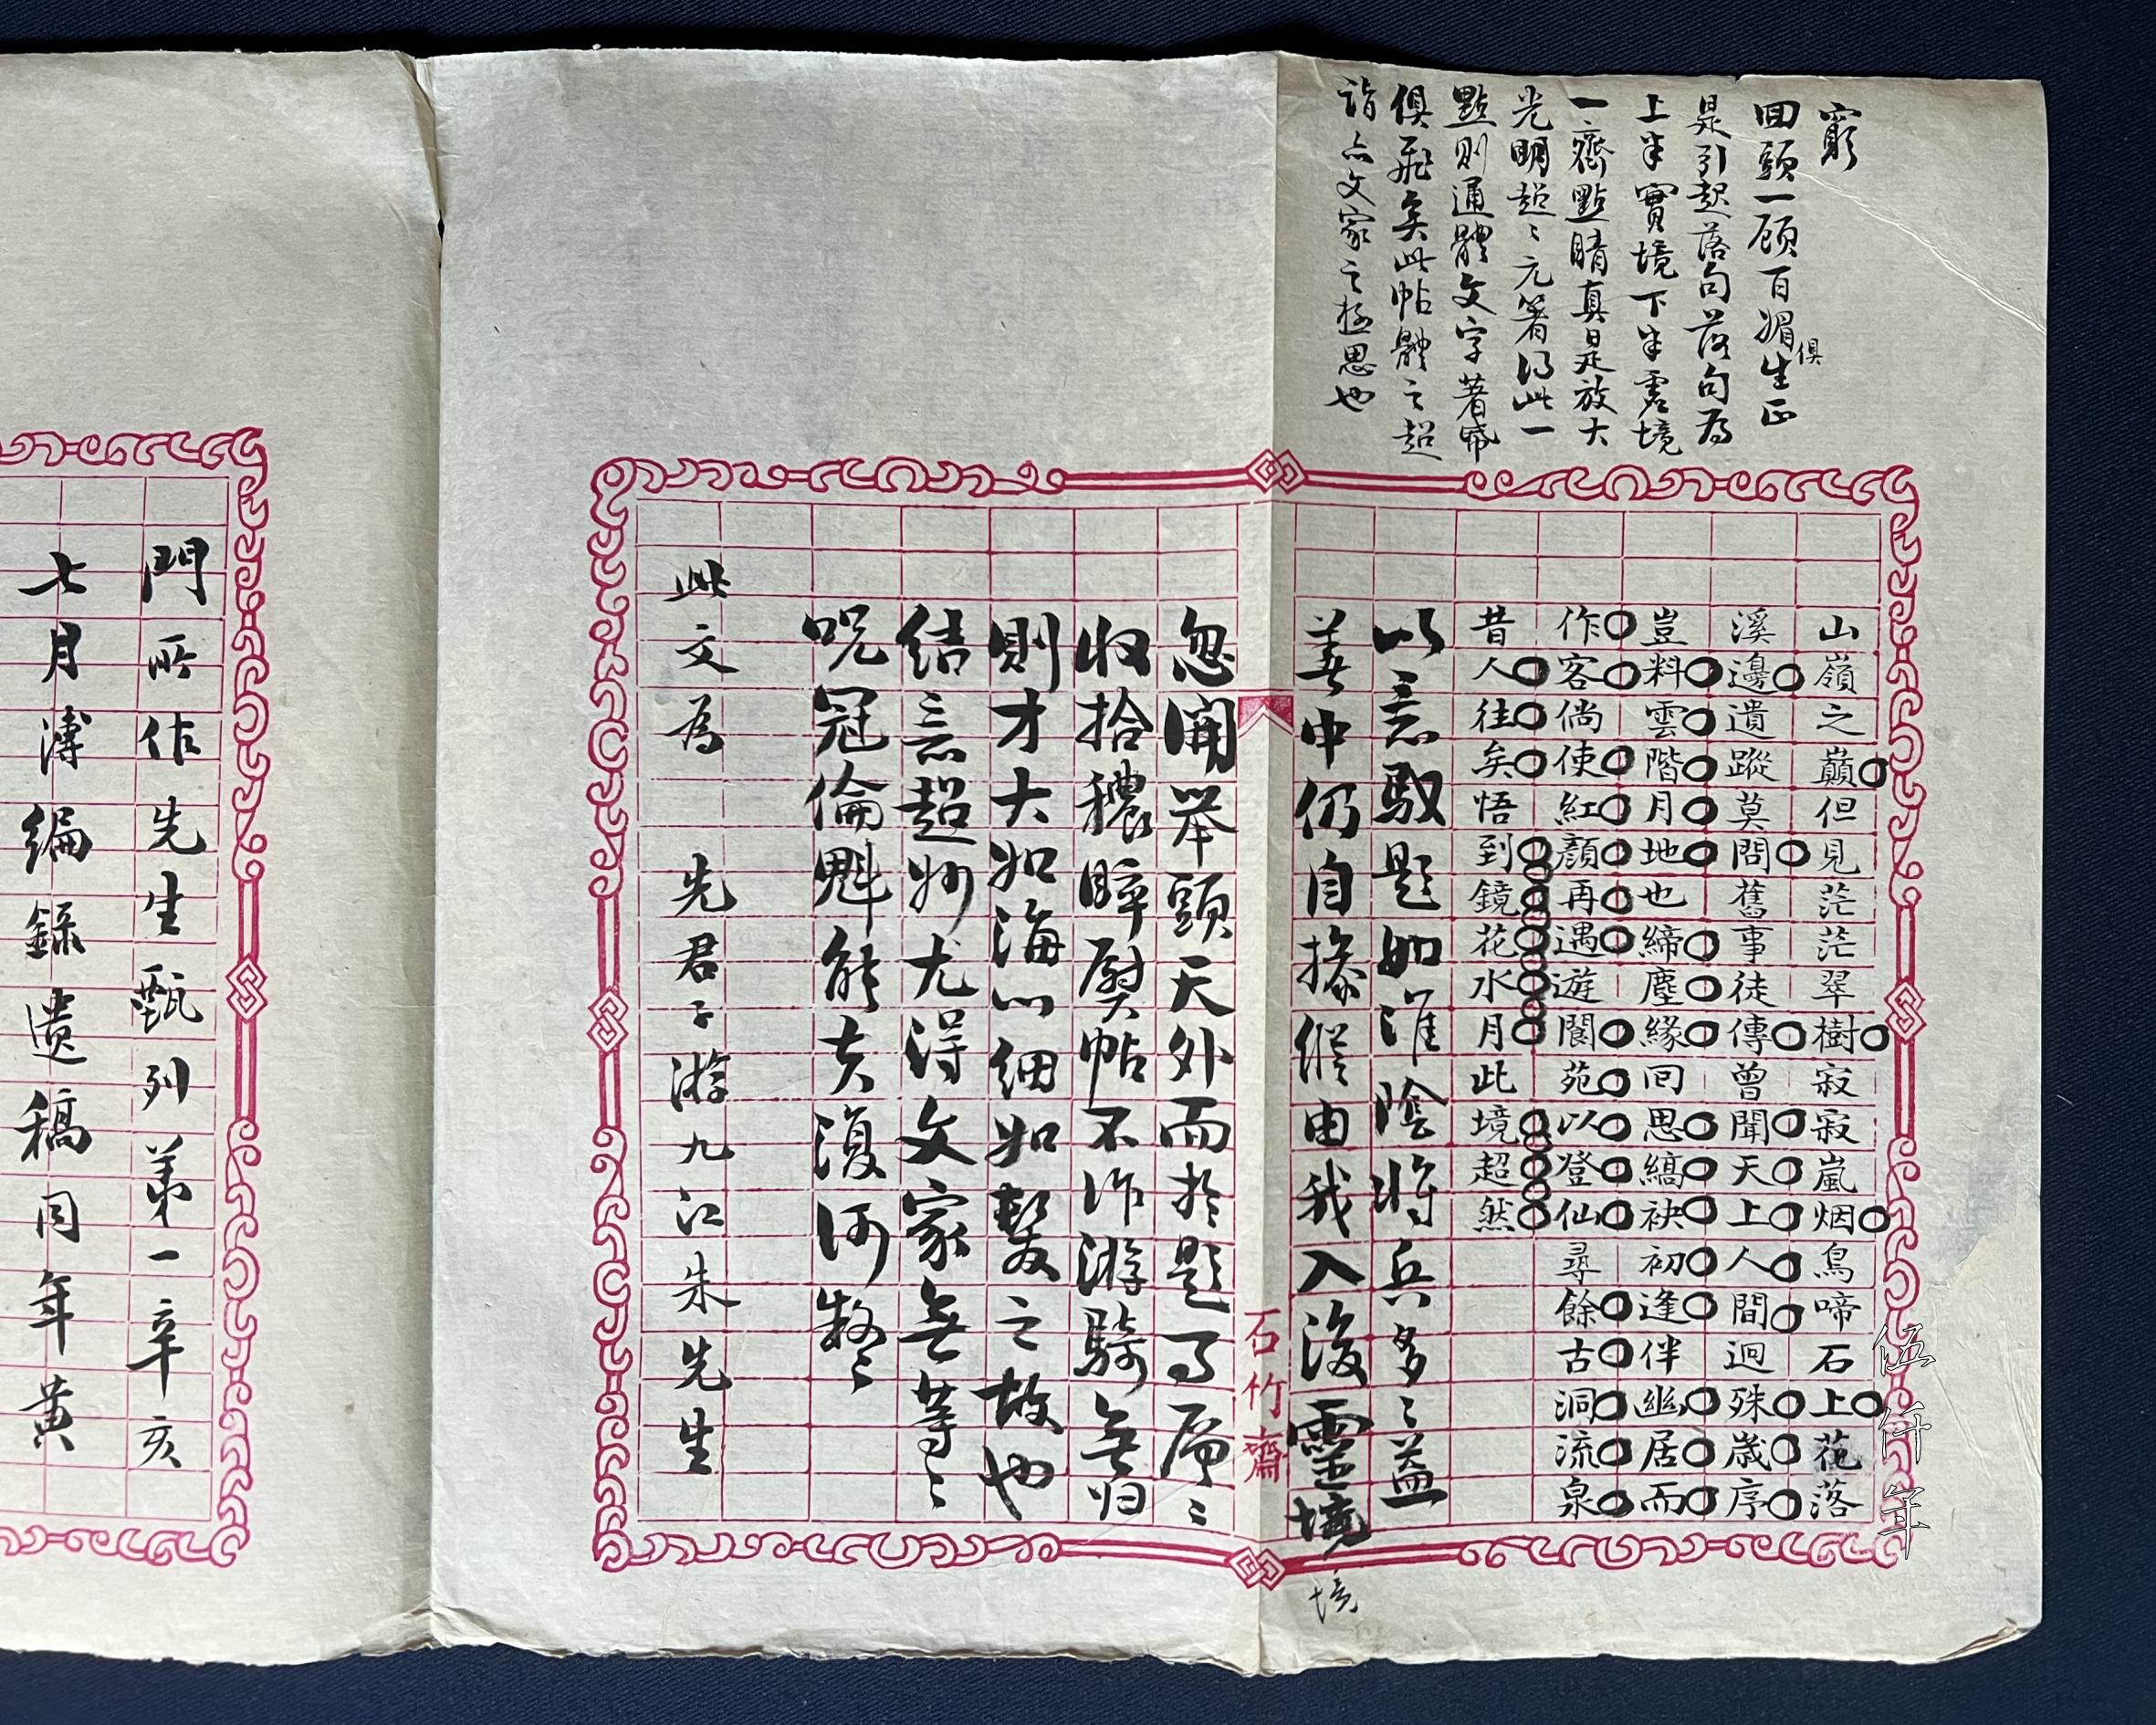 窮
回頭一顧百媚俱生正
是引起落句落句為
上半實境下半虛境
一齊點睛真是放大
光明超〻元箸得此一
點則通體文字著紙
俱飛矣此帖體之超
詣亦文家之極思也
山嶺之巔但見茫茫翠樹寂寂嵐烟鳥啼石上花落
溪邊遺蹤莫問舊事徒傳曾聞天上人間迥殊歲序
豈料雲階月地也締塵緣回思縞袂初逢伴幽居而
作客倘使紅顏再遇遊閬苑以登仙尋餘古洞流泉
昔人往矣悟到鏡花水月此境超然
以意馭題如淮陰將兵多〻益
善中仍自操縱由我入後靈境
境
忽開舉頭天外而於題了屑〻
收拾穠粹熨帖不作游騎無归
則才大如海心細如髮之故也
結意超妙尤得文家無等〻
咒冠倫魁能夫復何疑〻
石竹齋
此文為 先君子游九江朱先生
門所作先生甄列第一辛亥
七月溥編錄遺稿同年黄
伍仟年